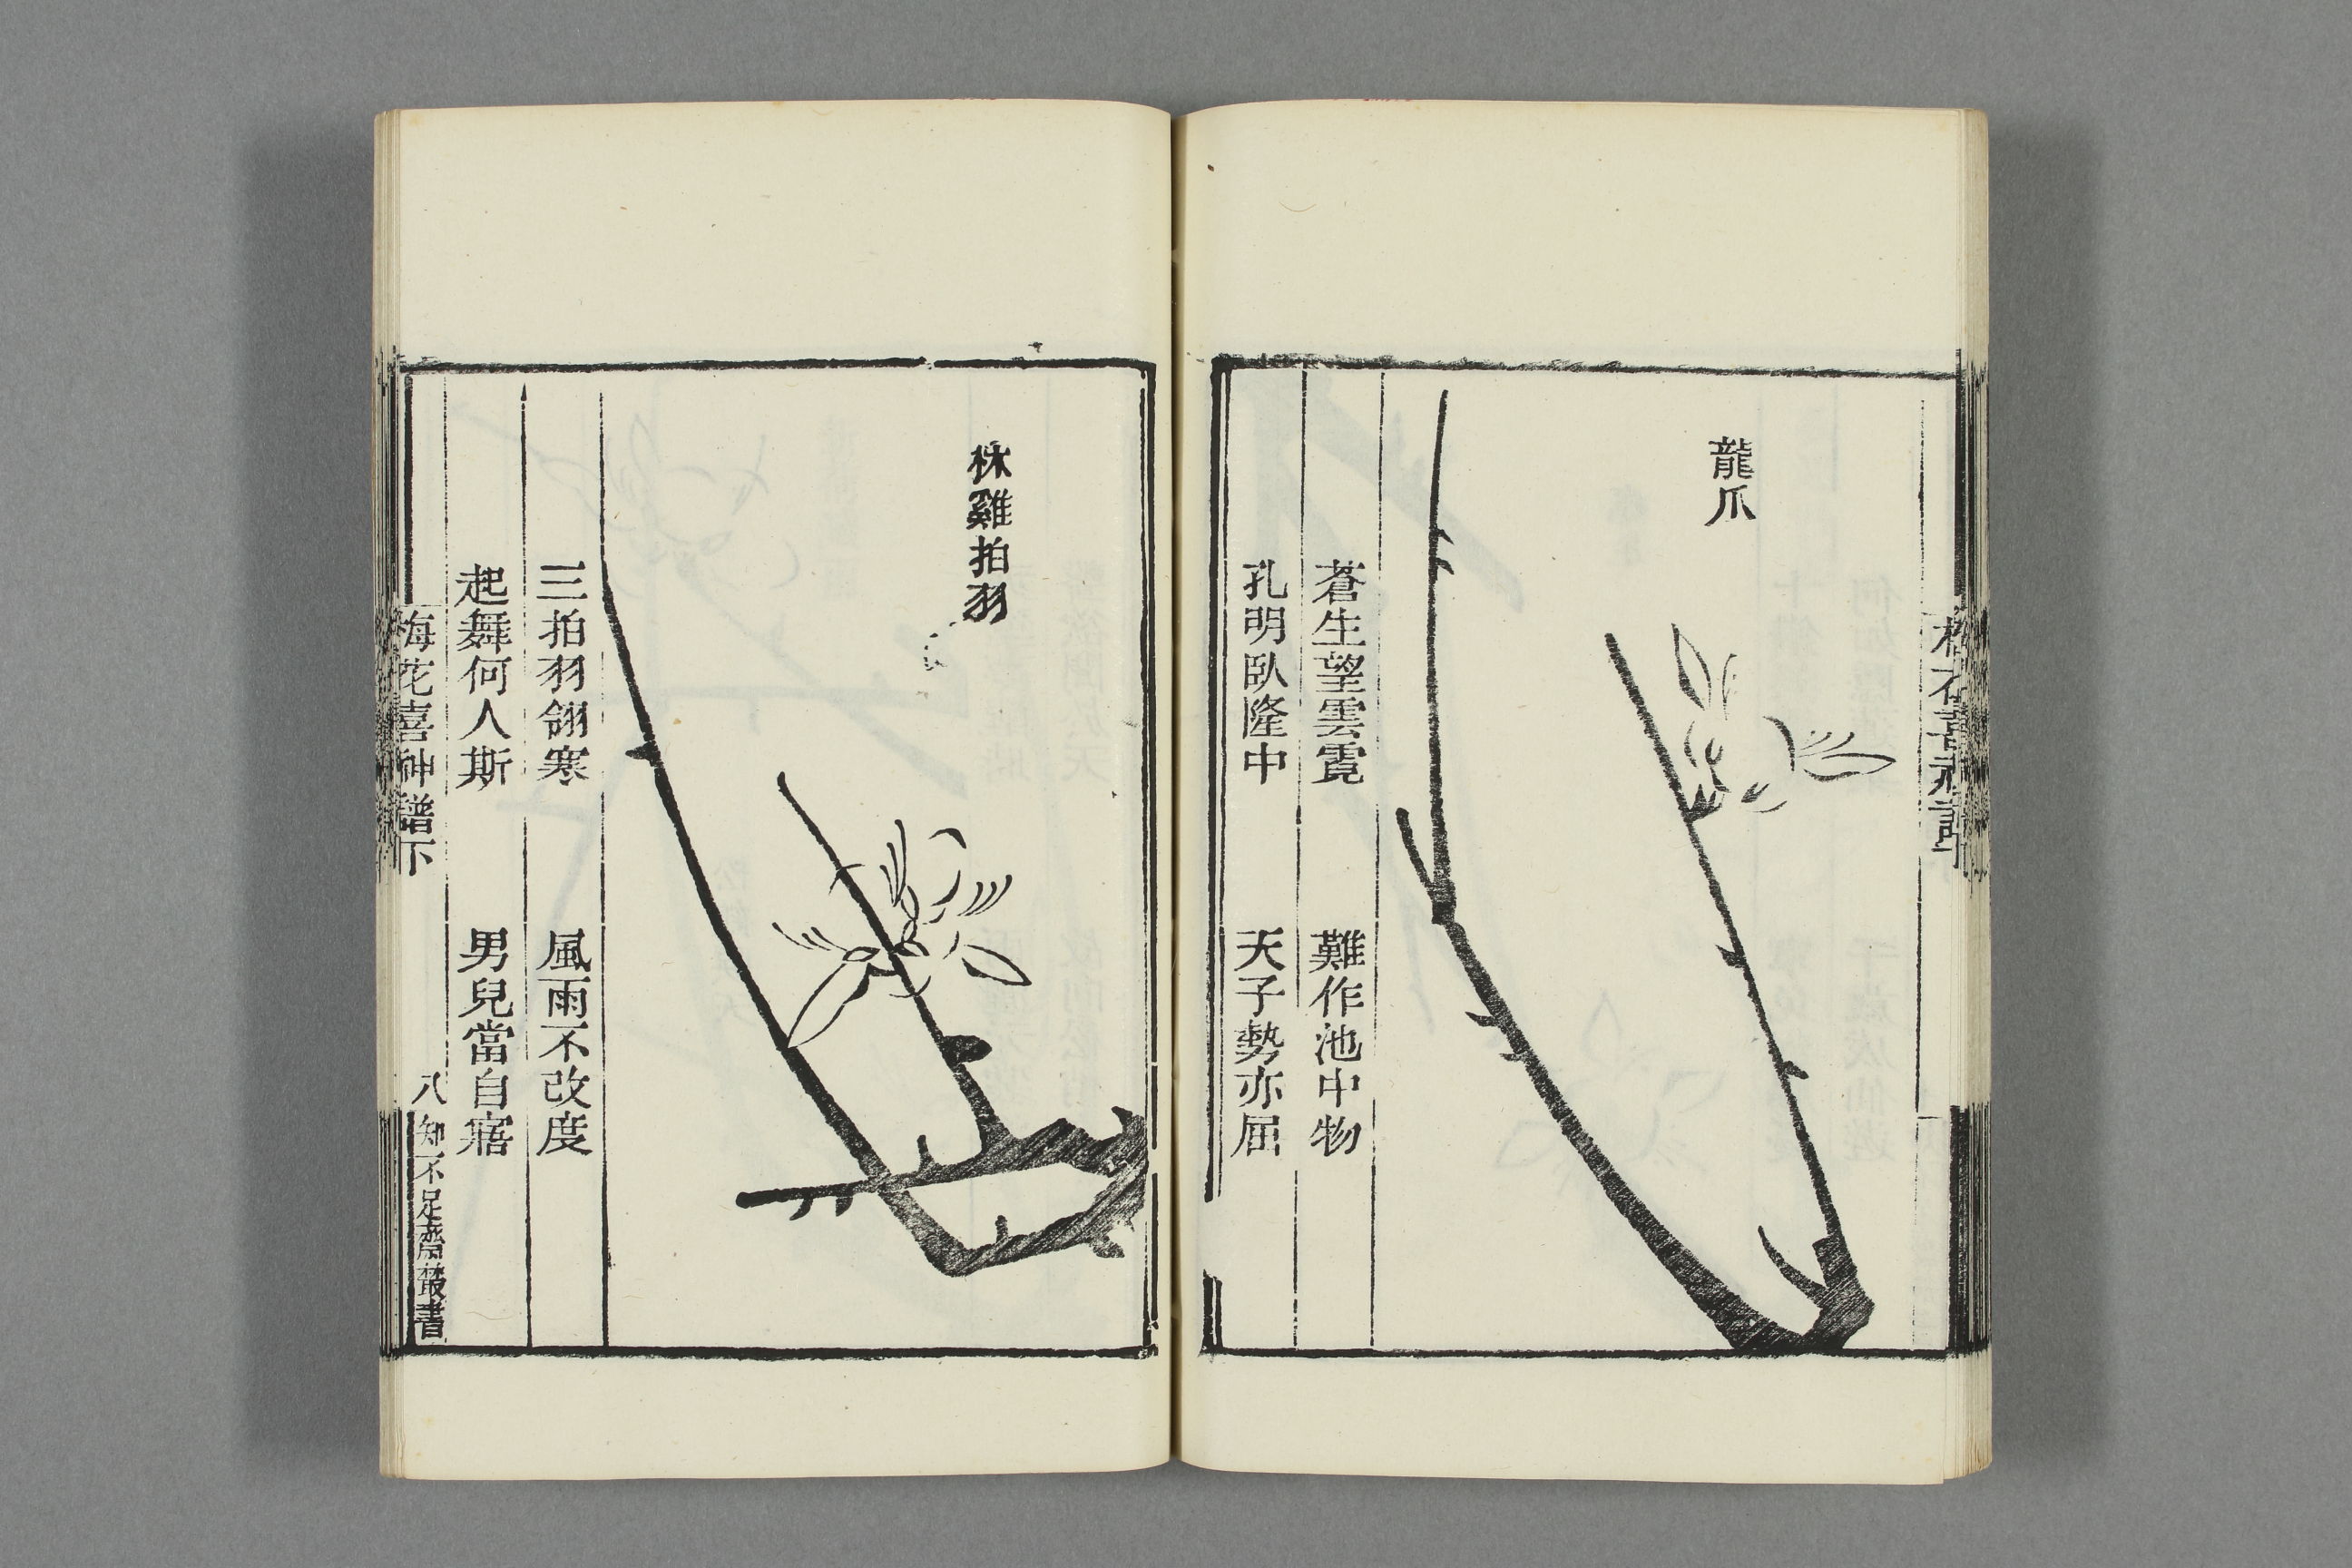 龍爪
蒼生望雲霓 難作池中物
孔明臥隆中 天子勢亦屈
林雞拍羽
三拍羽翎寒 風雨不改度
起舞何人斯 男兒當自寤
梅花喜神譜下 八 知不足齋叢書